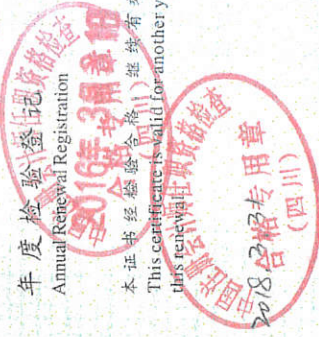 年度检验登记
Annual Renewal Registration
本证书经检验合格，继续有效
This certificate is valid for another y
this renewal.
注册会计师任职资格检查
2016年3月
合格专用章
(四川)
注册会计师任职资格检查
合格专用章
(四川)
2018.3.31